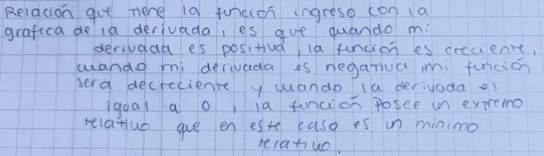 Relación que tiene la función ingreso con la
grafica de la derivada, es que quando mi
derivada es positiva, la función es creciente,
cuando mi derivada es negativa mi función
sera decreciente y cuando la derivada es
igual a 0, la función posee un extremo
relativo que en este caso es un minimo
relativo.